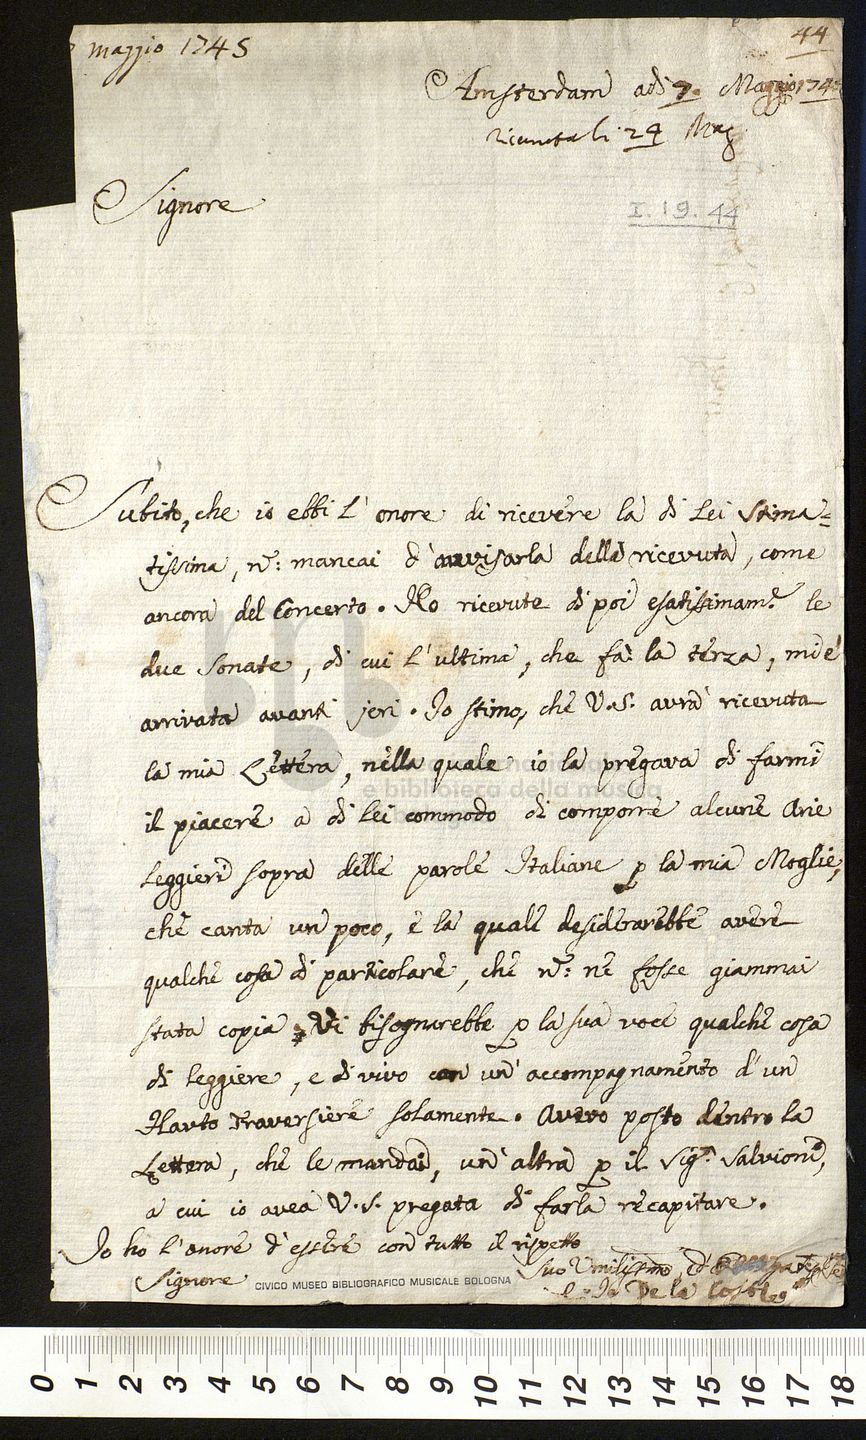 maggio 1745
44
Amsterdam adì 7. Maggio 1745
ricevuta li 24 Mag
Signore
I. 19. 44
Subito, che io ebbi l'onore di ricevere la di Lei Stima=
tissima, n.: mancai d'avvisarla della ricevuta, come
ancora del Concerto. Ho ricevute di poi esatissimam.e le
due Sonate, di cui l'ultima, che fà la terza, mi è
arrivata avanti jeri. Io stimo, che V.S. avrà ricevuta
la mia Lettera, nella quale io la pregava di farmi
il piacere a di lei commodo di comporre alcune Arie
leggieri sopra delle parole Italiane p la mia Moglie,
che canta un poco, e la quale desiderarebbe avere
qualche cosa di particolare, che n.: ne fosse giammai
stata copia; Vi bisognarebbe p la sua voce qualche cosa
di leggiere, e di vivo con un' accompagnamento d'un
Flauto Traversiere solamente. Avevo posto dentro la
Lettera, che le mandai, un' altra p il Sig.r Salvioni,
a cui io avea V.S. pregata di farla recapitare.
Io ho l'onore d'essere con tutto il rispetto
Signore
Suo Umilissimo, ed
De la Coste
CIVICO MUSEO BIBLIOGRAFICO MUSICALE BOLOGNA
e biblioteca della musica
0 1 2 3 4 5 6 7 8 9 10 11 12 13 14 15 16 17 18